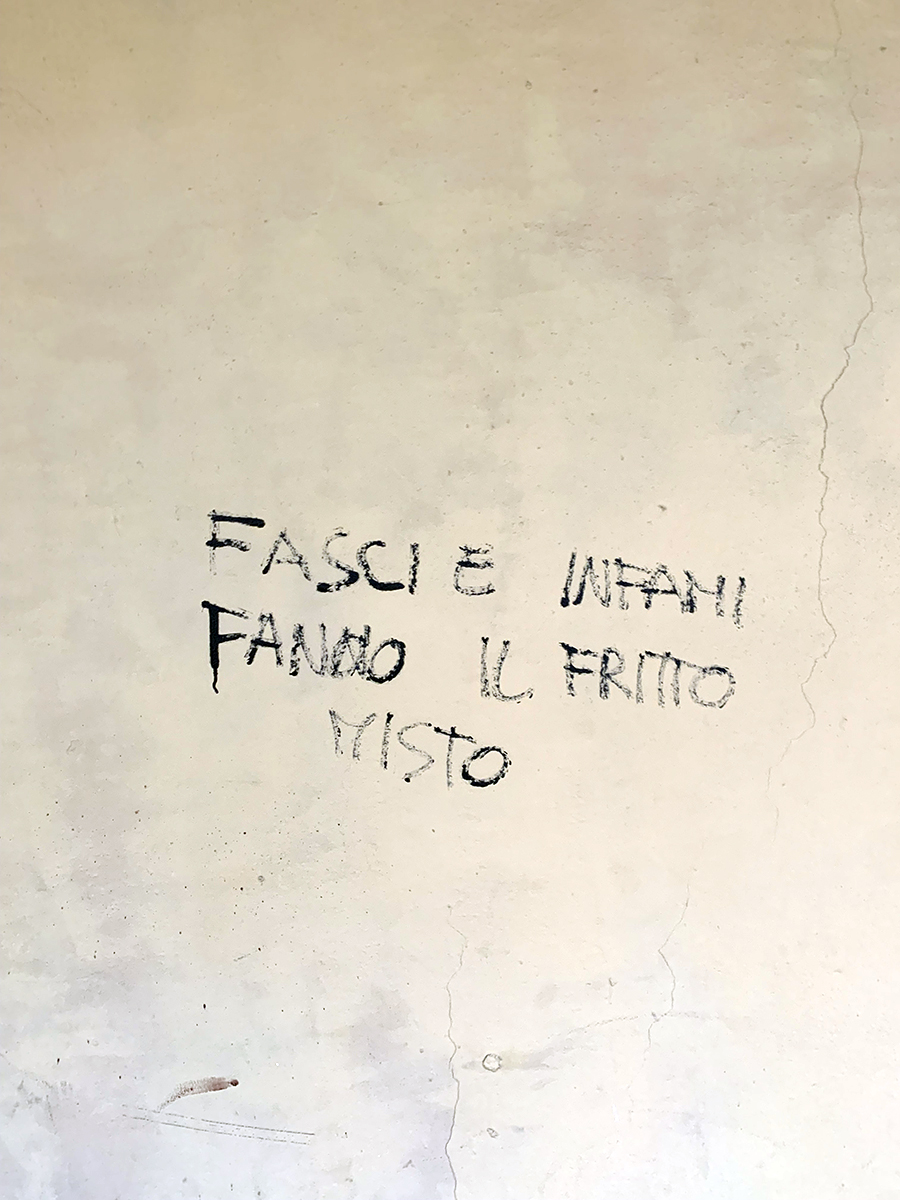 FASCI E INFAMI
FANNO IL FRITTO
MISTO